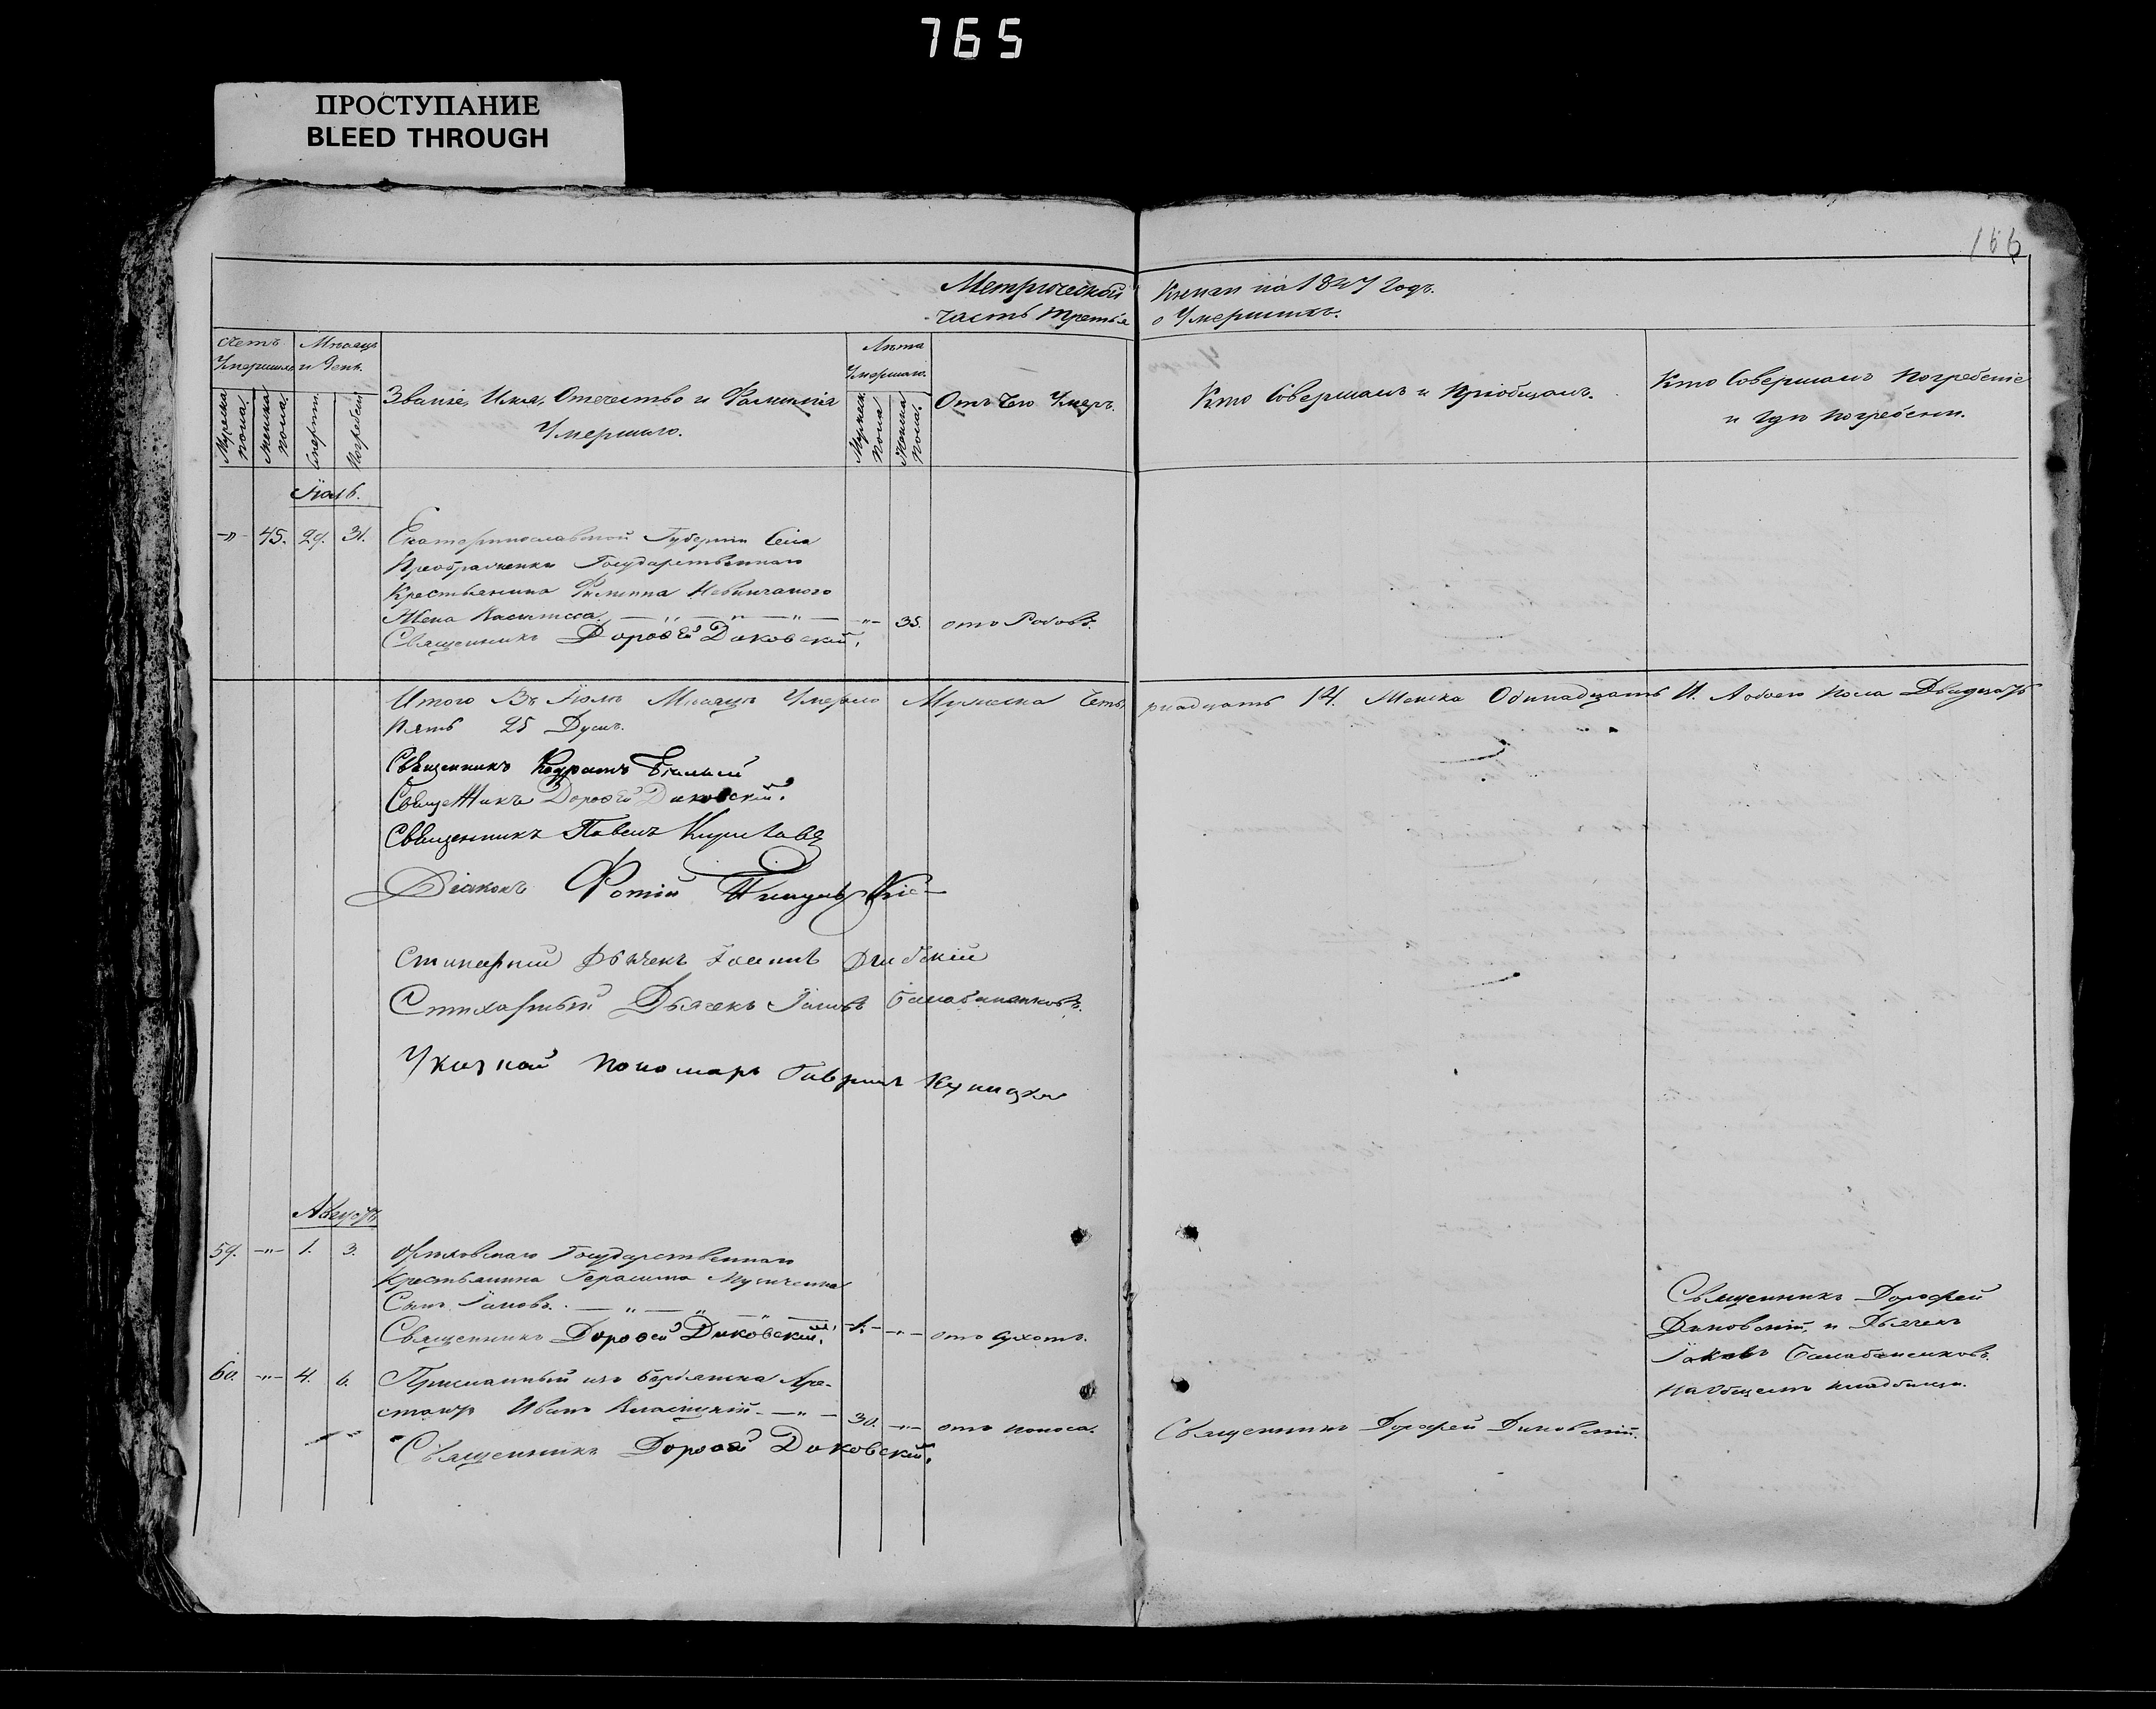 765
ПРОСТУПАНИЕ
BLEED THROUGH
166
Метрической Книги на 1847 Годъ.
часть третья о Умершихъ.
счетъ Умершихъ
Мужеска пола.
Женска пола.
Мѣсяцъ и День.
Смерти.
Погребенія
Званіе, Имя, Отечество и Фамилія
Умершаго.
Лѣта Умершаго.
Мужеск. пола
Женска пола.
Отъ Чего Умеръ.
Кто Совершалъ и Пріобщалъ.
Кто Совершалъ Погребеніе
и гдѣ погребены.
Іюль.
-"- 45. 29. 31. Екатеринославской Губерніи Села
Преображенки Государственнаго
Крестьянина Филиппа
Жена Васлисса. — " — " — " — -"- 35. отъ Родовъ.
Священникъ Дорофей Диковскій.
Итого Въ Іюлѣ Мѣсяцѣ Умерло Мужеска Четырнадцать 14. Женска Одинадцать 11. Обоего пола Двадцать
Пять 25 Душъ.
Священникъ Кодратъ
Священникъ Дорофей Диковскій.
Священникъ Павелъ
Діаконъ Фотій
Стихарный Дьячекъ Іоаннъ
Стихарный Дьячекъ Іаковъ Балабаненковъ.
Указной пономарь Гавриилъ
Августъ
59. -"- 1. 3. Орѣховскаго Государственнаго
Крестьянина Герасима
Сынъ Іаковъ. — " — " — " —
Священникъ Дорофей Диковскій. -1.- -"- отъ сухотъ.
Священникъ Дорофей
Диковскій, и Дьячекъ
Іаковъ Балабаненковъ.
На Общемъ кладбищѣ.
60. -"- 4. 6. Присланный изъ Бердянска Аре-
стантъ Иванъ — " — 30. -"- отъ поноса. Священникъ Дорофей Диковскій.
Священникъ Дорофей Диковскій.